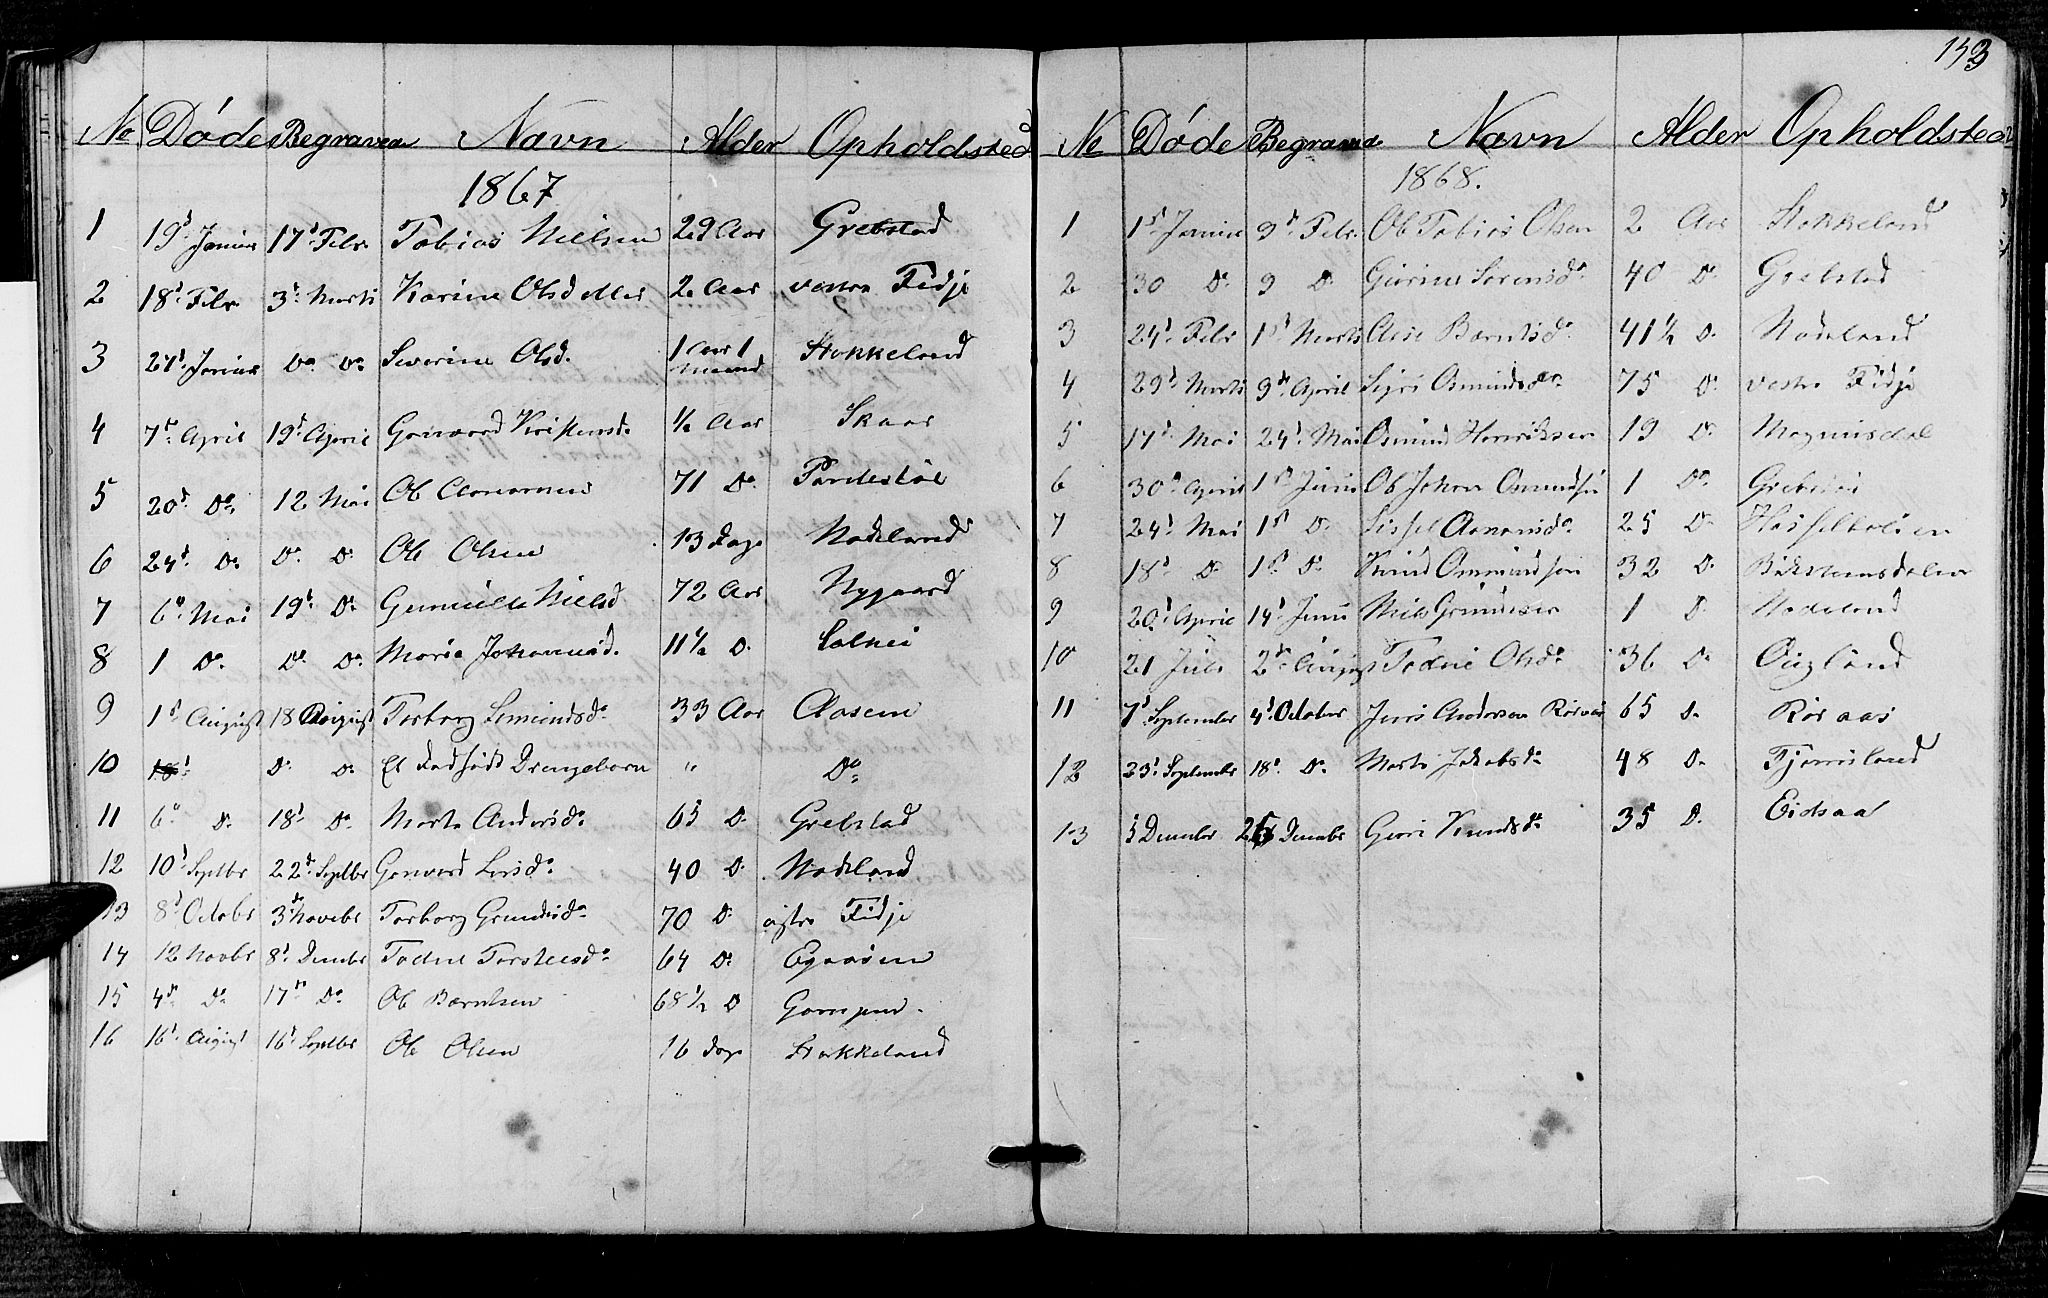 No Døde Begraven Navn Alder Opholdsted
1867
1 19d Januar 17d Febr Tobias Nielsen 29 Aar Grebstad
2 18d Febr 3d Marts Karine Olsdatter 2 Aar vestre Fidje
3 27d Januar Do Do Severine Olsd. 1 Aar 1 Maaned Stokkeland
4 7de April 19d April Gunvord Kristensd. 1/2 Aar Skaar
5 20d Do 12 Mai Ole Aanonsen 71 Do
6 24d Do Do Do Ole Olsen 13 Dage Nodeland
7 6te Mai 19d Do Gunnille Nielsd 72 Aar Nygaard
8 1 Do Do Do Marie Johannesd. 11 1/2 D.
9 1st August 18 August Torborg Semundsdr 33 Aar Aasen
10 18d Do Do Et Dødfødt Drengebarn " Do
11 6te D. 18d Do Marte Andersdr 65 D. Grebstad
12 10d Septbr 22d Septbr Gunvord Larsdr 40 D. Nodeland
13 8d Octobr 3d Novebr Torborg Grundesdr 70 D. østre Fidje
14 12 Novbr 8d Decmbr Todne Torsteesdr 64 D.
15 4de Do 17de Do Ole Bærntsen 68 1/2 D
16 16d August 16d Septbr Ole Olsen 16 Dage Stokkeland
153
No Døde Begraven Navn Alder Opholdsted
1868.
1 1st Januar 9d Febr. Ole Tobias Olsen 2 Aar Stokkeland
2 30 Do 9 D. Gurine Sørensdr 40 Do Grebstad
3 24d Febr 1st Marts Aase Bærntsdr 41 1/2 D. Nodeland
4 29d Marts 9de April Sigri Osmundsdr 75 D. vestre Fidje
5 17d Mai 24d Mai Osmund Henriksen 19 D. Magnusdal
6 30te April 1st Juni Ole Johan Osmundsen 1 Do
7 24d Mai 1st D. Sissel Aanonsdr 25 D.
8 18d D. 1st Do Knud Osmundsen 32 D.
9 20d April 14d Juni Niels Grundesen 1 D. Nodeland
10 21 Juli 2den August Todne Olsdr 36 Do Augland
11 7d September 4d October Jens Andersen Rørvas 65 D.
12 23d Septembr 18d Do Marte Jakobsdr 48 D.
13 5 Decmbr 26 Decmbr Guri Knudsdr 35 D. Eidsaa